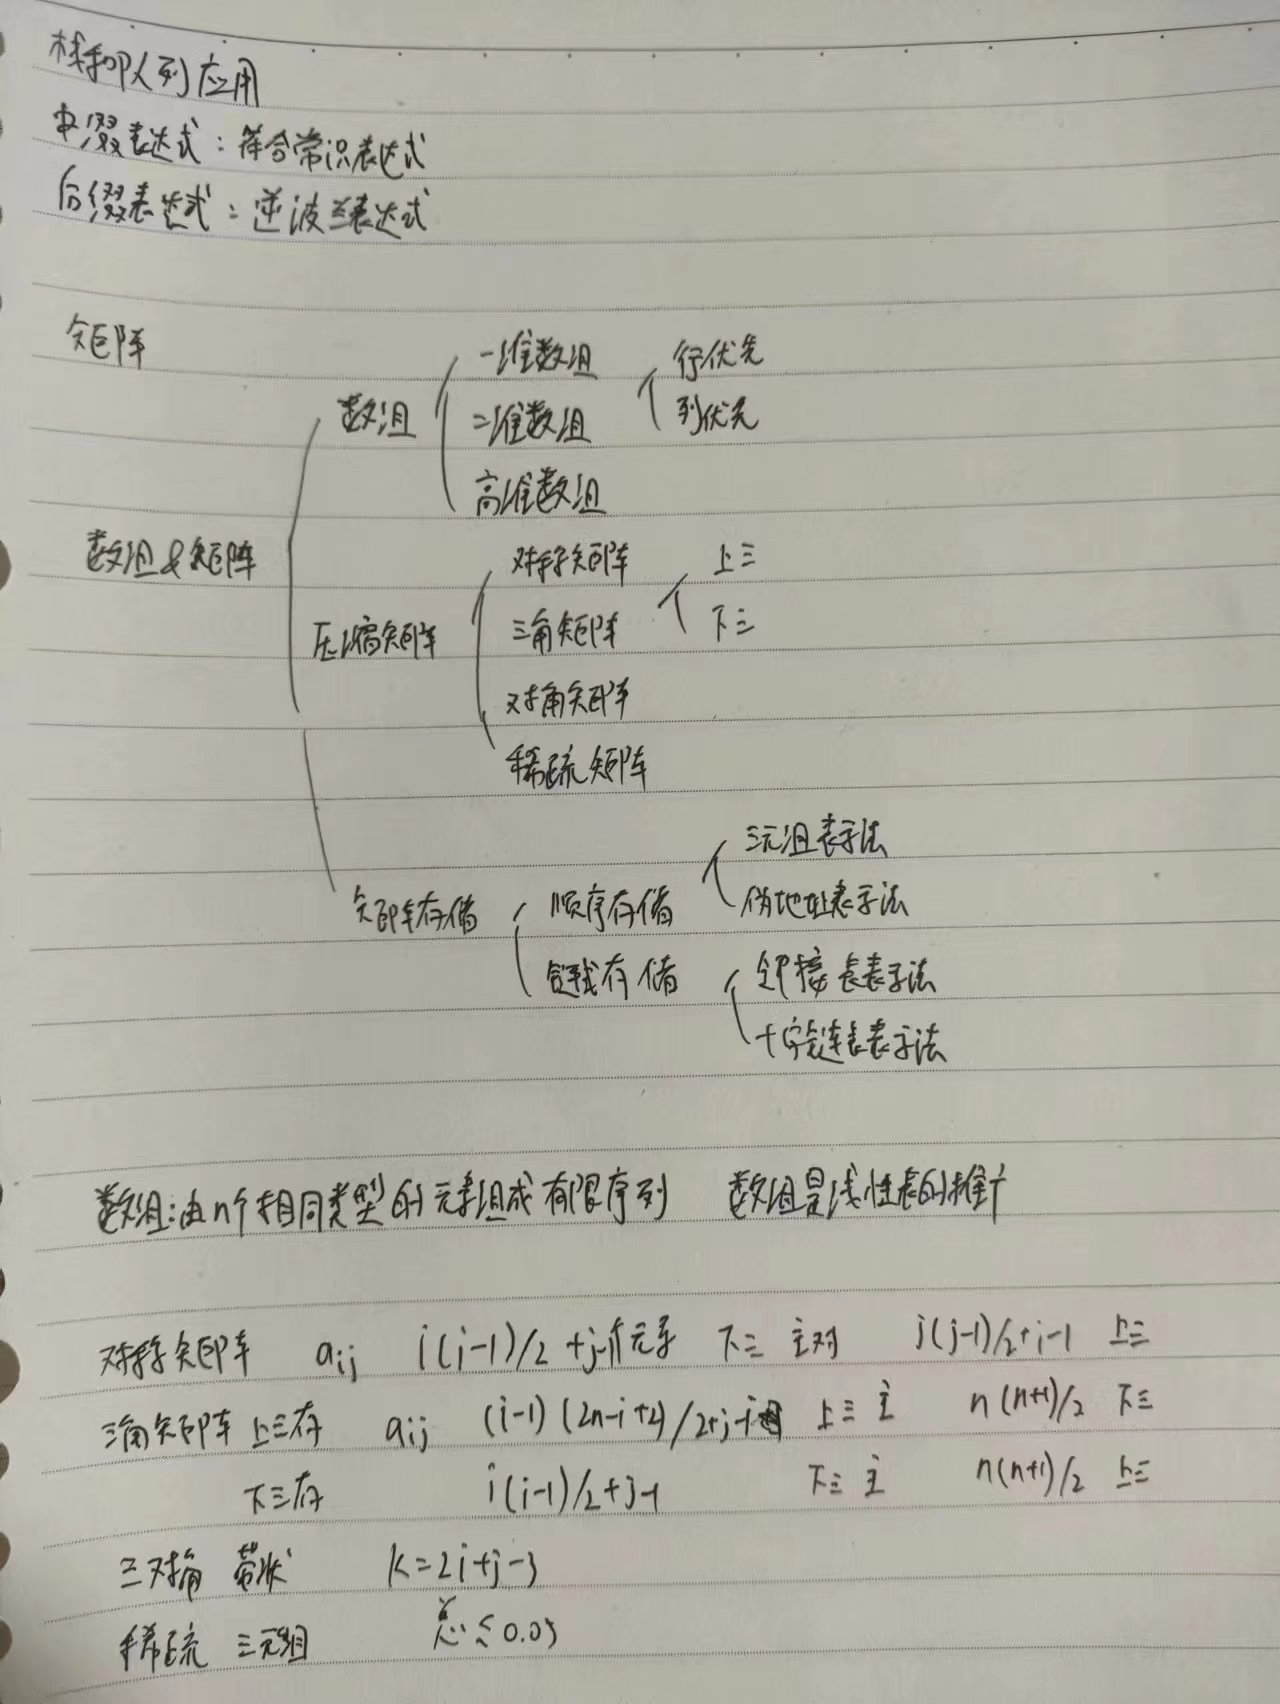 栈和队列应用
中缀表达式：符合常识表达式
后缀表达式：逆波兰表达式
矩阵
一维数组 行优先
数组 二维数组 列优先
高维数组
数组&矩阵 对称矩阵 上三
压缩矩阵 三角矩阵 下三
对角矩阵
稀疏矩阵
三元组表示法
矩阵存储 顺序存储 伪地址表示法
链式存储 邻接表表示法
十字链表表示法
数组：由n个相同类型的元素组成有限序列 数组是线性表的推广
对称矩阵 aij i(i-1)/2+j-1个元素 下三 主对 j(j-1)/2+i-1 上三
三角矩阵 上三存 aij (i-1)(2n-i+2)/2+j-i 上三 主 n(n+1)/2 下三
下三存 i(i-1)/2+j-1 下三 主 n(n+1)/2 上三
三对角 带状 k=2i+j-3
稀疏 三元组 总≤0.05